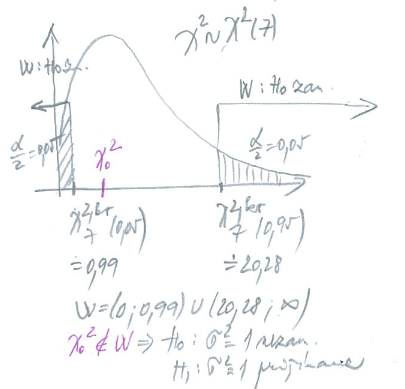 χ² ~ χ²(7)
W: H₀ zam.
W: H₀ zam.
α/2 = 0,05
χ₀²
α/2 = 0,05
χ² kr 7 (0,05)
χ² kr 7 (0,95)
≐ 0,99
≐ 20,28
W = (0 ; 0,99) ∪ (20,28 ; ∞)
χ₀² ∉ W ⇒ H₀ : σ² = 1 nezam.
H₁ : σ² ≠ 1